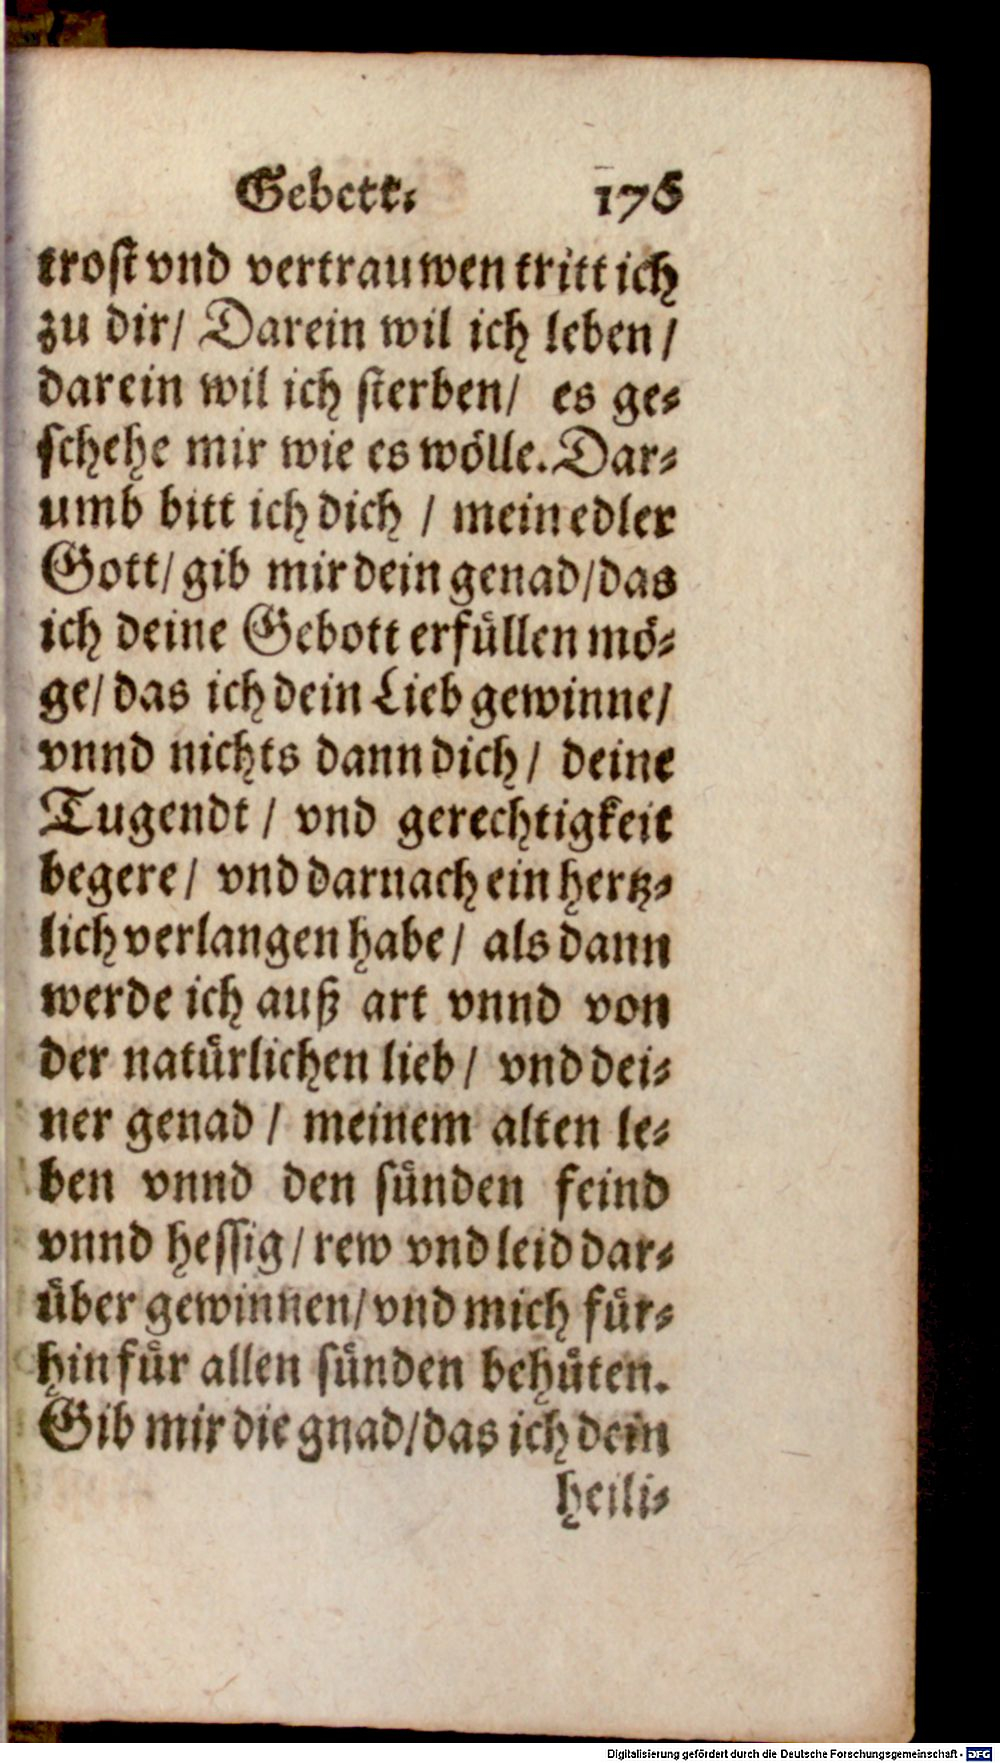 Gebett. 176
trost vnd vertrauwen tritt ich
zu dir/ Darein wil ich leben/
darein wil ich sterben/ es ge-
schehe mir wie es wölle. Dar-
umb bitt ich dich / mein edler
Gott/ gib mir dein genad/ das
ich deine Gebott erfüllen mö-
ge/ das ich dein Lieb gewinne/
vnnd nichts dann dich/ deine
Tugendt / vnd gerechtigkeit
begere/ vnd darnach ein hertz-
lich verlangen habe/ als dann
werde ich auß art vnnd von
der natürlichen lieb/ vnd dei-
ner genad / meinem alten le-
ben vnnd den sünden feind
vnnd hessig/ rew vnd leid dar-
über gewinnen/ vnd mich für-
hin für allen sünden behüten.
Gib mir die gnad/ das ich dein
heili-
Digitalisierung gefördert durch die Deutsche Forschungsgemeinschaft - DFG